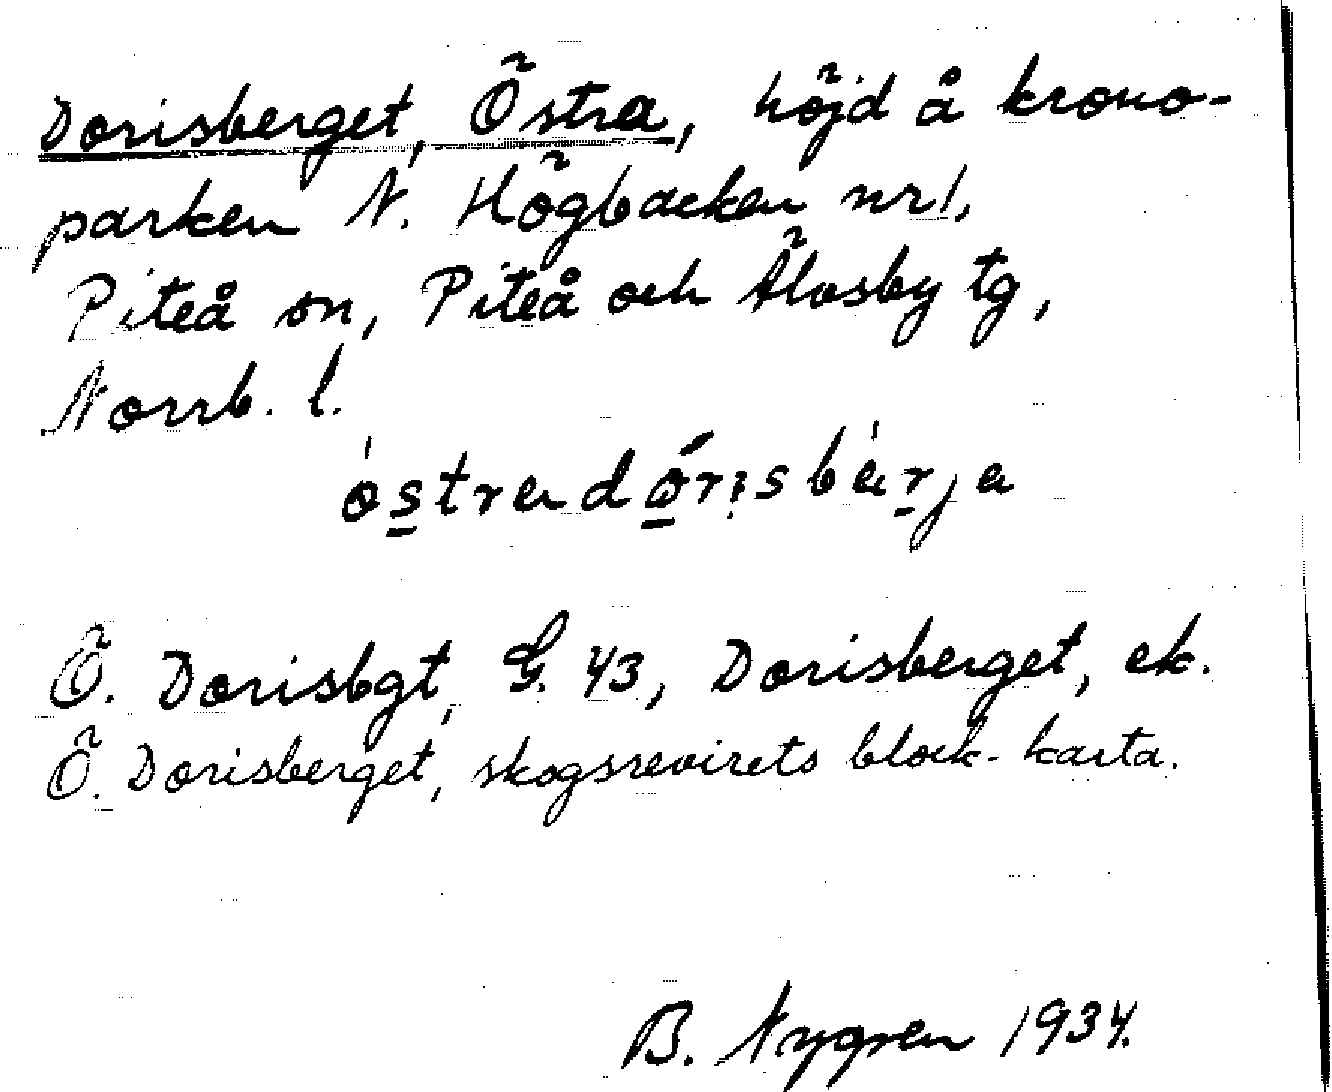 Dorisberget, Östra, höjd å krono-
parken N. Högbacken nr 1,
Piteå sn, Piteå och Älvsby tg,
Norrb. l.
östradórisbàrja
Ö. Dorisbgt, G. 43, Dorisberget, ek.
Ö. Dorisberget, skogsrevirets block-karta.
B. Nygren 1934.